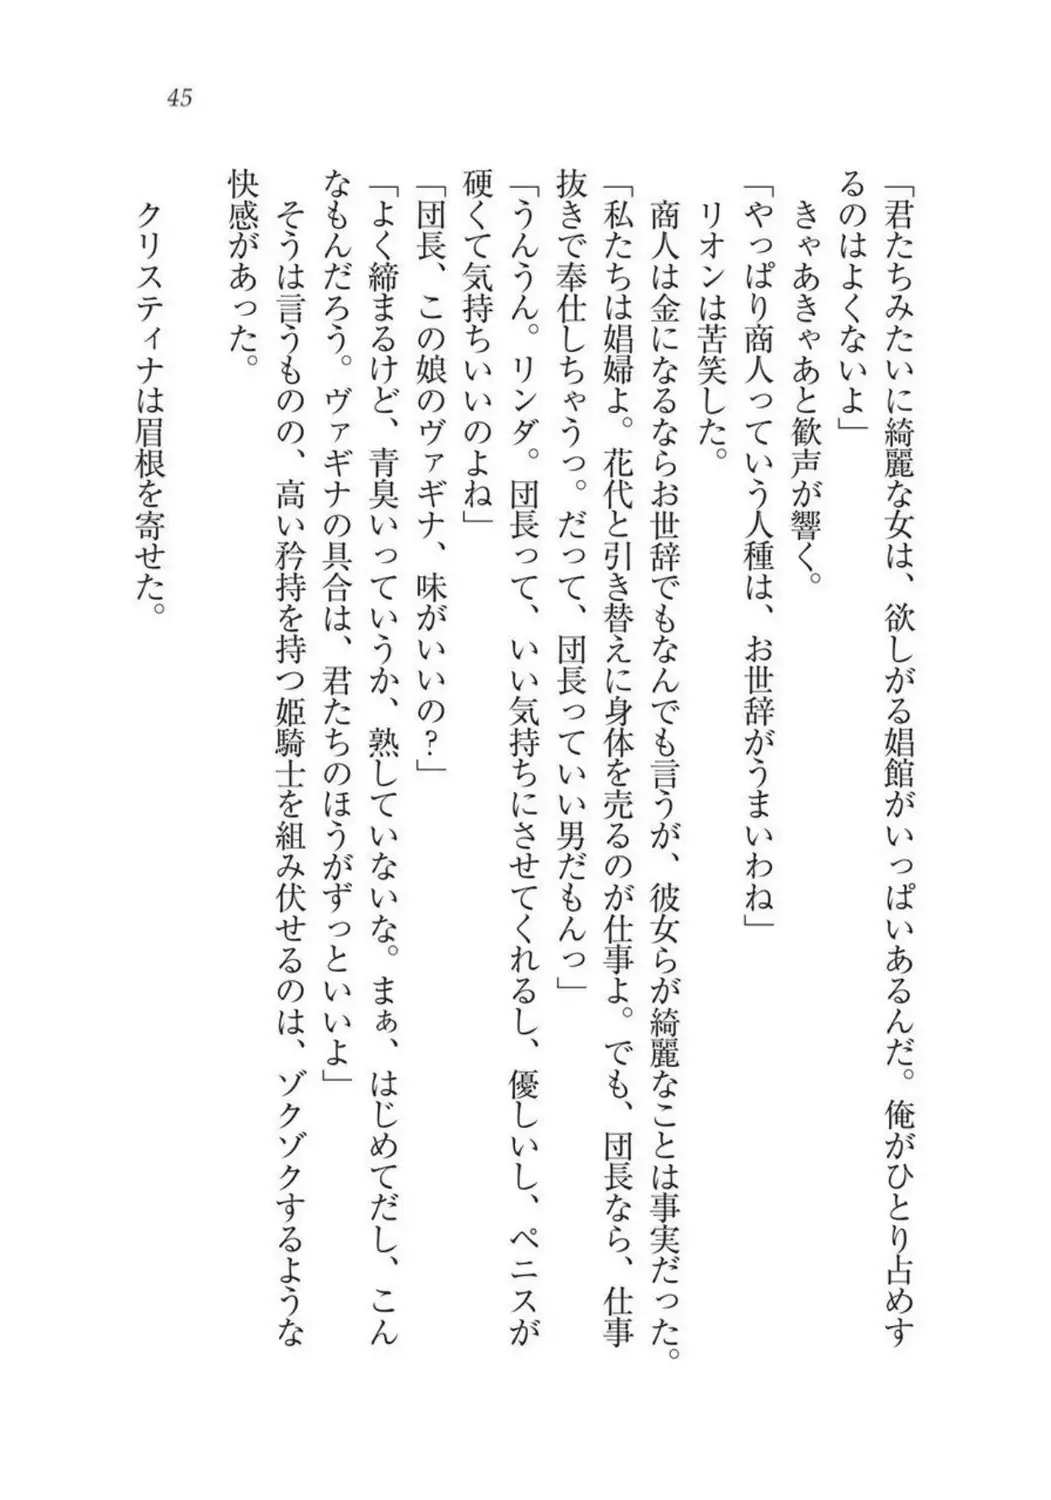 45
「君たちみたいに綺麗な女は、欲しがる娼館がいっぱいあるんだ。俺がひとり占めす
るのはよくないよ」
きゃあきゃあと歓声が響く。
「やっぱり商人っていう人種は、お世辞がうまいわね」
リオンは苦笑した。
商人は金になるならお世辞でもなんでも言うが、彼女らが綺麗なことは事実だった。
「私たちは娼婦よ。花代と引き替えに身体を売るのが仕事よ。でも、団長なら、仕事
抜きで奉仕しちゃうっ。だって、団長っていい男だもんっ」
「うんうん。リンダ。団長って、いい気持ちにさせてくれるし、優しいし、ペニスが
硬くて気持ちいいのよね」
「団長、この娘のヴァギナ、味がいいの?」
「よく締まるけど、青臭いっていうか、熟していないな。まぁ、はじめてだし、こん
なもんだろう。ヴァギナの具合は、君たちのほうがずっといいよ」
そうは言うものの、高い矜持を持つ姫騎士を組み伏せるのは、ゾクゾクするような
快感があった。
クリスティナは眉根を寄せた。